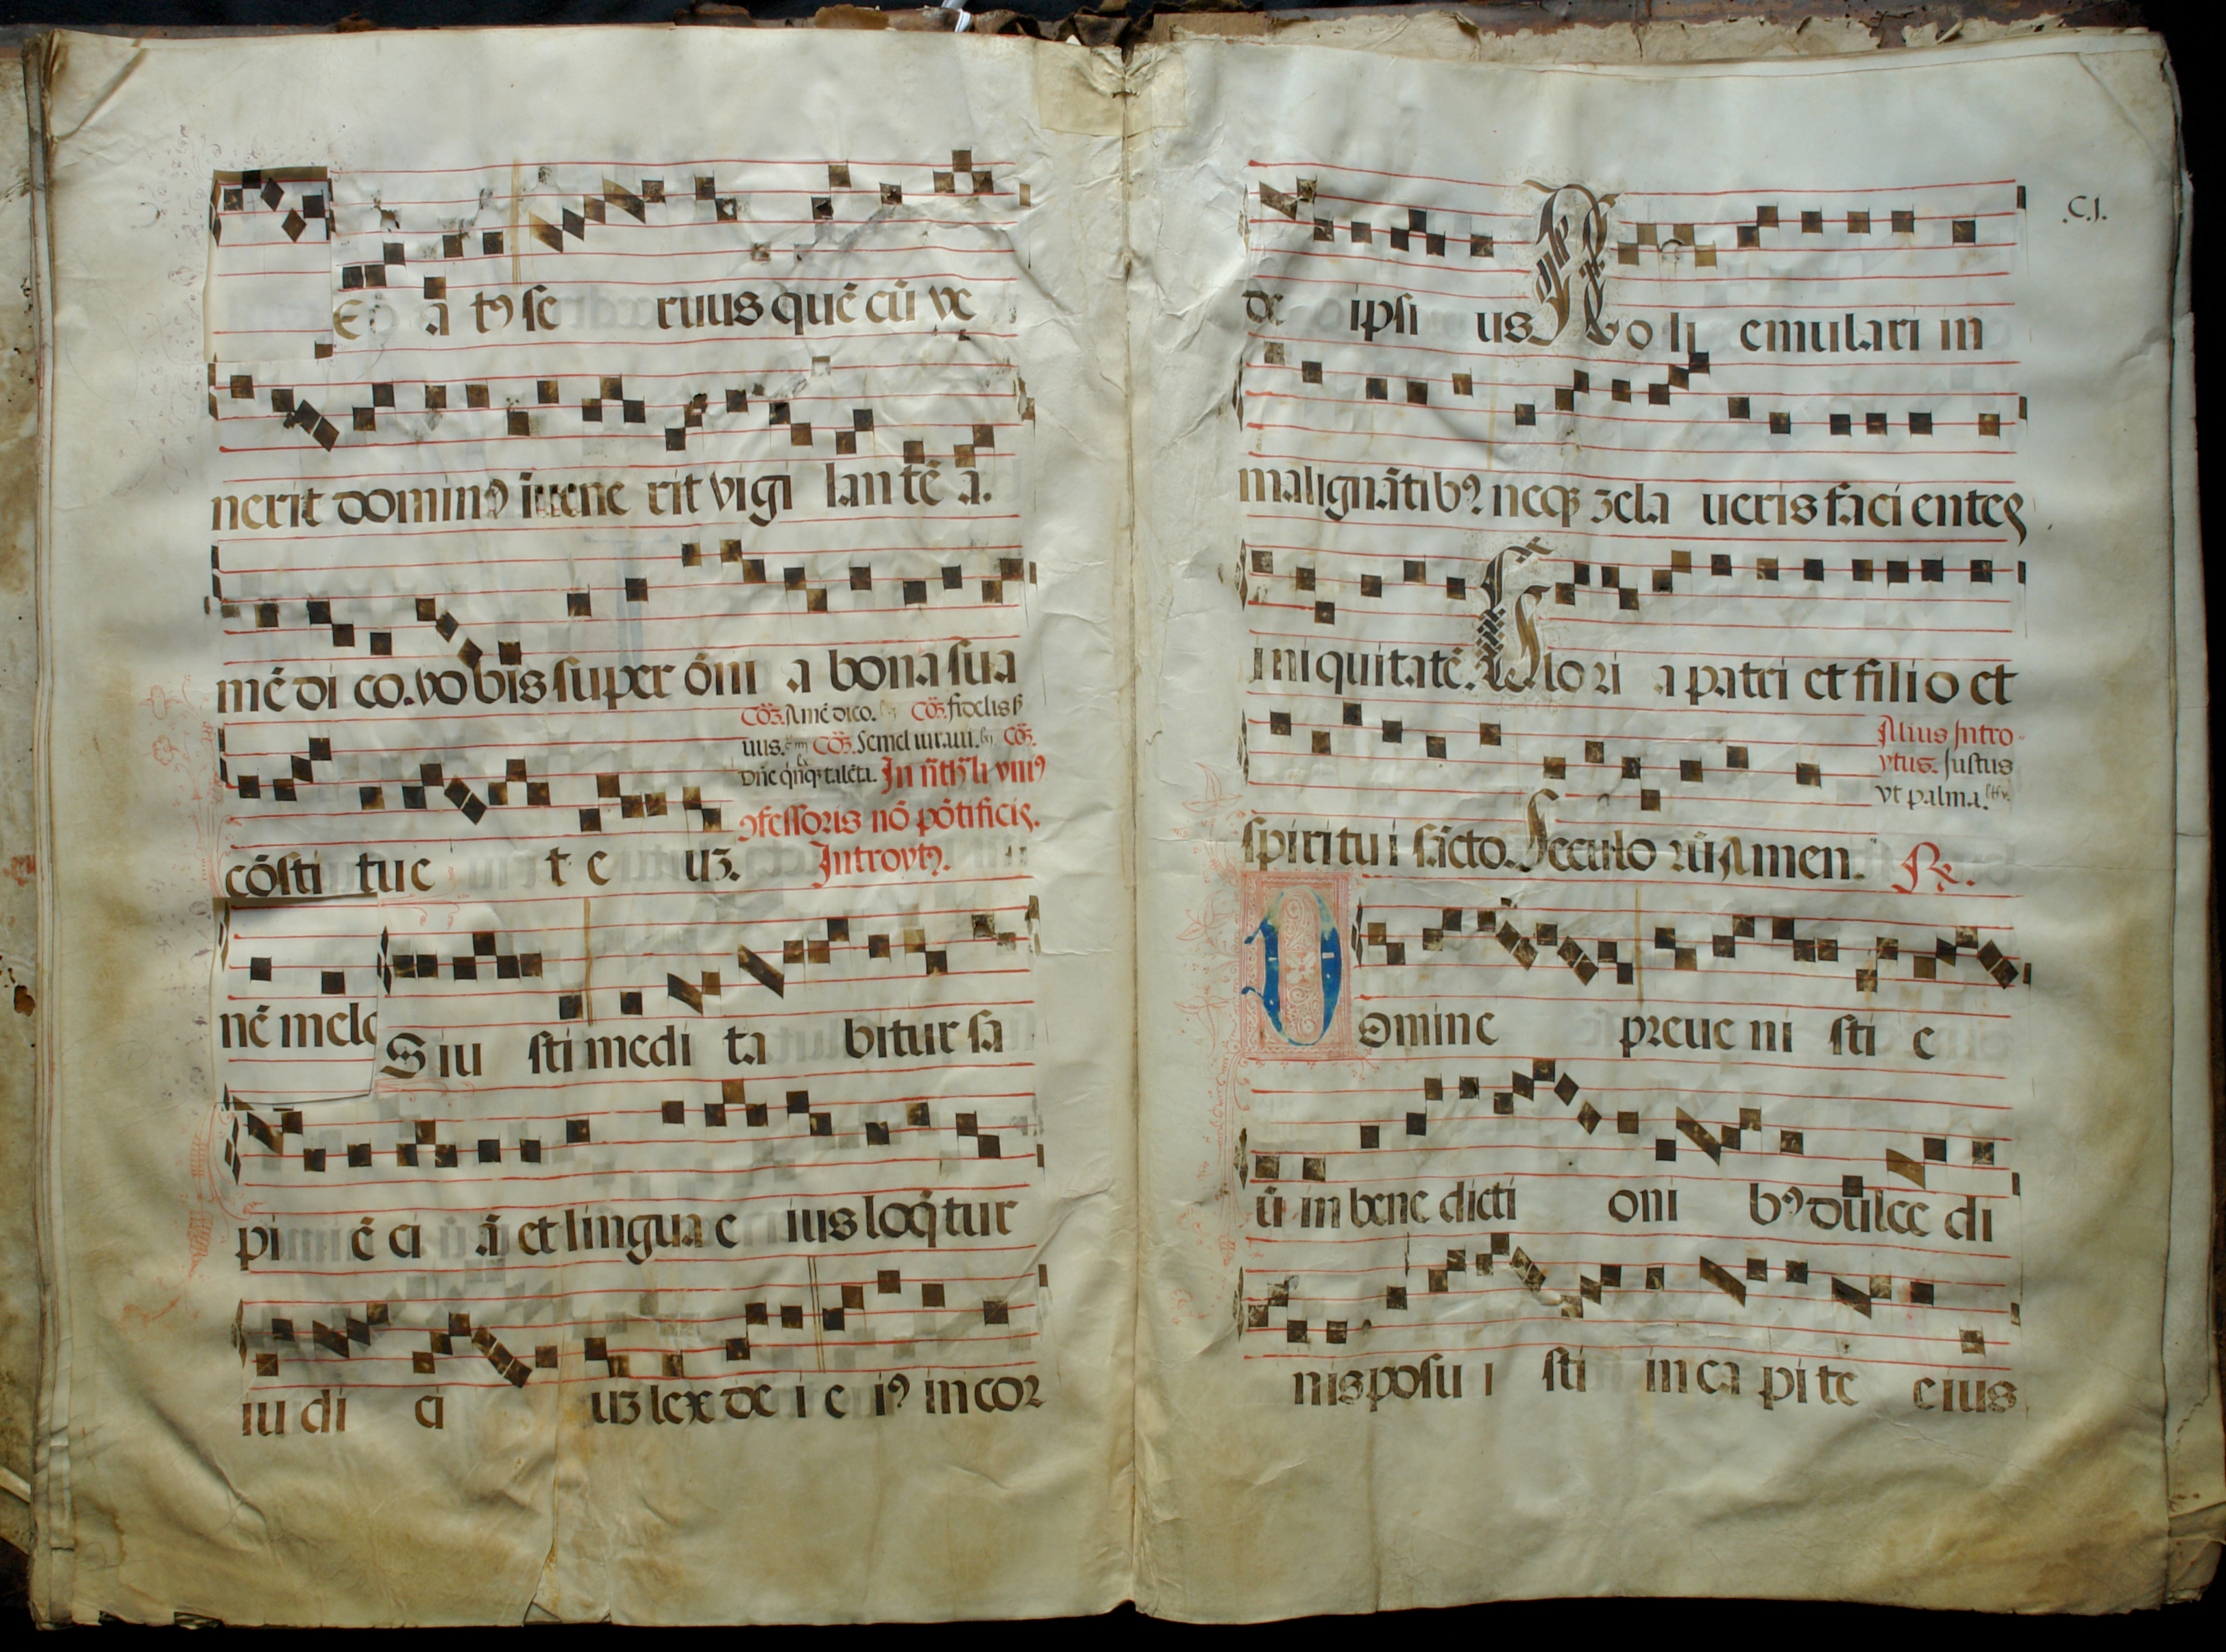 Eá tꝰ se ruus quē cū ve
nerit dominꝰ īuene rit vigi lan tē a.
mē di co. vo bis super ōni a bona sua
Cōz. Amē dico. Cōz. fidelis ß
uus. Cōz. Semel iuraui. Cōz.
Dn̄e qn̄qꝫ talēta. In nt̄li vniꝰ
ꝯfessoris nō pōtificis.
cōsti tue t e uꝫ. Introytꝰ.
nē mele
S iu sti medi ta bitur sa
pi ē ci ā et lingua e ius loq̄tur
iu di ci uꝫ lex de i e iꝰ in cor
.C.J.
de ipsi us No li emulari in
malignātibꝰ neqꝫ zela ueris faci entes
iniquitatē. Glo ri a patri et filio et
Alius Intro-
ytus. Justus
vt palma.
spiritui sācto. Seculo rū Amen. R̄.
Domine preue ni sti e
ū in bene dicti oni bꝰ dulce di
nis posu i sti in ca pi te eius